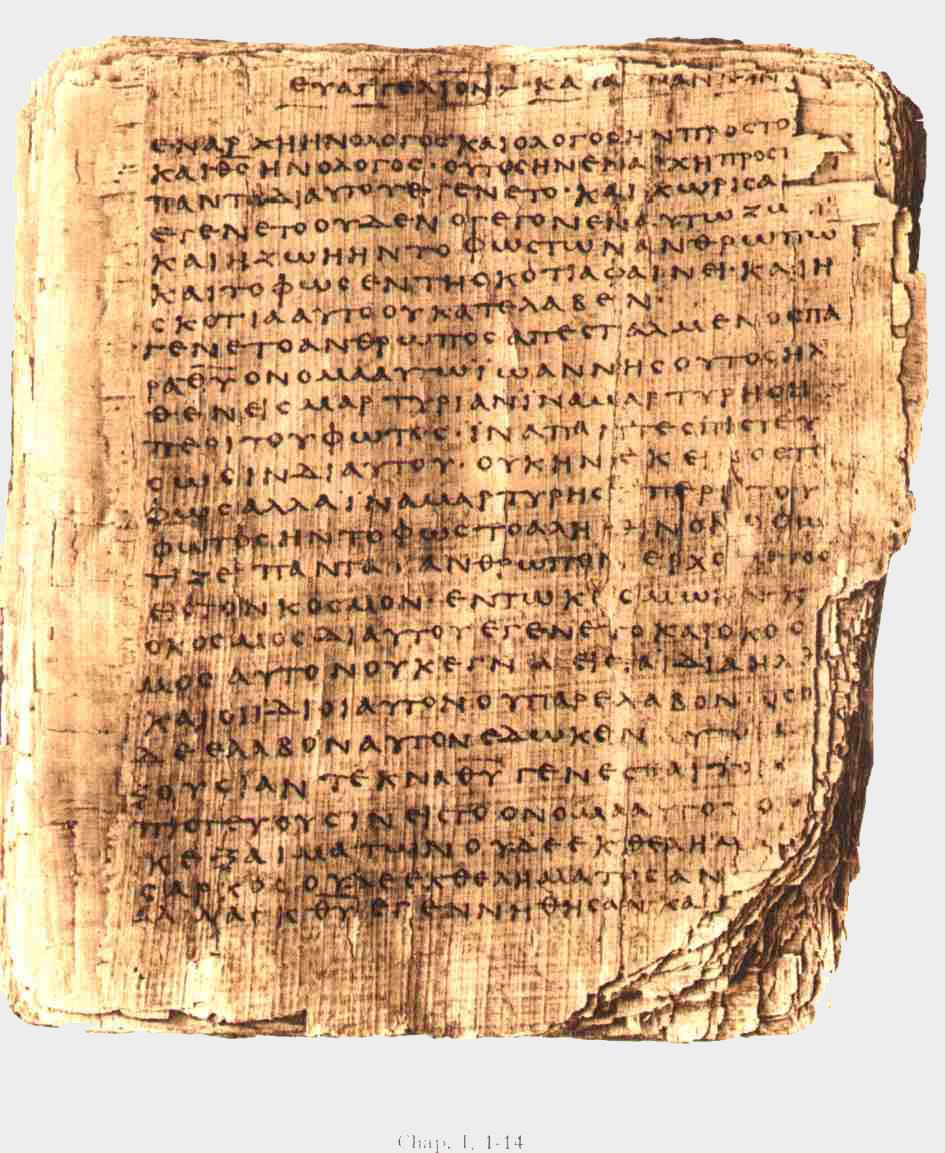 ΕΥΑΓΓΕΛΙΟΝ ΚΑΤΑ
ΕΝΑΡΧΗΗΝΟΛΟΓΟϹΚΑΙΟΛΟΓΟϹΗΝΠΡΟϹΤΟ
ΚΑΙΘ̅Ϲ̅ΗΝΟΛΟΓΟϹ·ΟΥΤΟϹΗΝΕΝΑΡΧΗΠΡΟϹΤ
ΠΑΝΤΑΔΙΑΥΤΟΥΕΓΕΝΕΤΟ·ΚΑΙΧΩΡΙϹΑ
ΕΓΕΝΕΤΟΟΥΔΕΝΟΓΕΓΟΝΕΝΕΝΑΥΤΩΖΩ
ΚΑΙΗΖΩΗΗΝΤΟΦΩϹΤΩΝΑΝΘΡΩΠΩ
ΚΑΙΤΟΦΩϹΕΝΤΗϹΚΟΤΙΑΦΑΙΝΕΙ·ΚΑΙΗ
ϹΚΟΤΙΑΑΥΤΟΟΥΚΑΤΕΛΑΒΕΝ·
ΓΕΝΕΤΟΑΝΘΡΩΠΟϹΑΠΕϹΤΑΛΜΕΝΟϹΠΑ
ΡΑΘ̅Υ̅ΟΝΟΜΑΑΥΤΩΪΩΑΝΝΗϹΟΥΤΟϹΗΛ
ΘΕΝΕΙϹΜΑΡΤΥΡΙΑΝΪΝΑΜΑΡΤΥΡΗϹΗ
ΠΕΡΙΤΟΥΦΩΤΟϹ·ΪΝΑΠΑΝΤΕϹΠΙϹΤΕΥ
ϹΩϹΙΝΔΙΑΥΤΟΥ·ΟΥΚΗΝΕΚΕΙΝΟϹΤΟ
ΦΩϹΑΛΛΑΪΝΑΜΑΡΤΥΡΗϹΗΠΕΡΙΤΟΥ
ΦΩΤΟϹ·ΗΝΤΟΦΩϹΤΟΑΛΗΘΙΝΟΝΟΦΩ
ΤΙΖΕΙΠΑΝΤΑΑΝΘΡΩΠΟΝΕΡΧΟΜΕΝΟ
ΕΙϹΤΟΝΚΟϹΜΟΝ·ΕΝΤΩΚΟϹΜΩΗΝΚ
ΟΚΟϹΜΟϹΔΙΑΥΤΟΥΕΓΕΝΕΤΟΚΑΙΟΚΟϹ
ΜΟϹΑΥΤΟΝΟΥΚΕΓΝΩΕΙϹΤΑΙΔΙΑΗΛΘ
ΚΑΙΟΙΙΔΙΟΙΑΥΤΟΝΟΥΠΑΡΕΛΑΒΟΝ·ΟϹΟ
ΔΕΕΛΑΒΟΝΑΥΤΟΝΕΔΩΚΕΝΑΥΤΟΙ
ΞΟΥϹΙΑΝΤΕΚΝΑΘ̅Υ̅ΓΕΝΕϹΘΑΙΤΟΙ
ΠΙϹΤΕΥΟΥϹΙΝΕΙϹΤΟΟΝΟΜΑΑΥΤΟΥΟ
ΚΕΞΑΙΜΑΤΩΝΟΥΔΕΕΚΘΕΛΗΜ
ϹΑΡΚΟϹΟΥΔΕΕΚΘΕΛΗΜΑΤΟϹΑΝ
ΑΛΛΑΕΚΘ̅Υ̅ΕΓΕΝΝΗΘΗϹΑΝΚΑΙ
Chap. I, 1-14